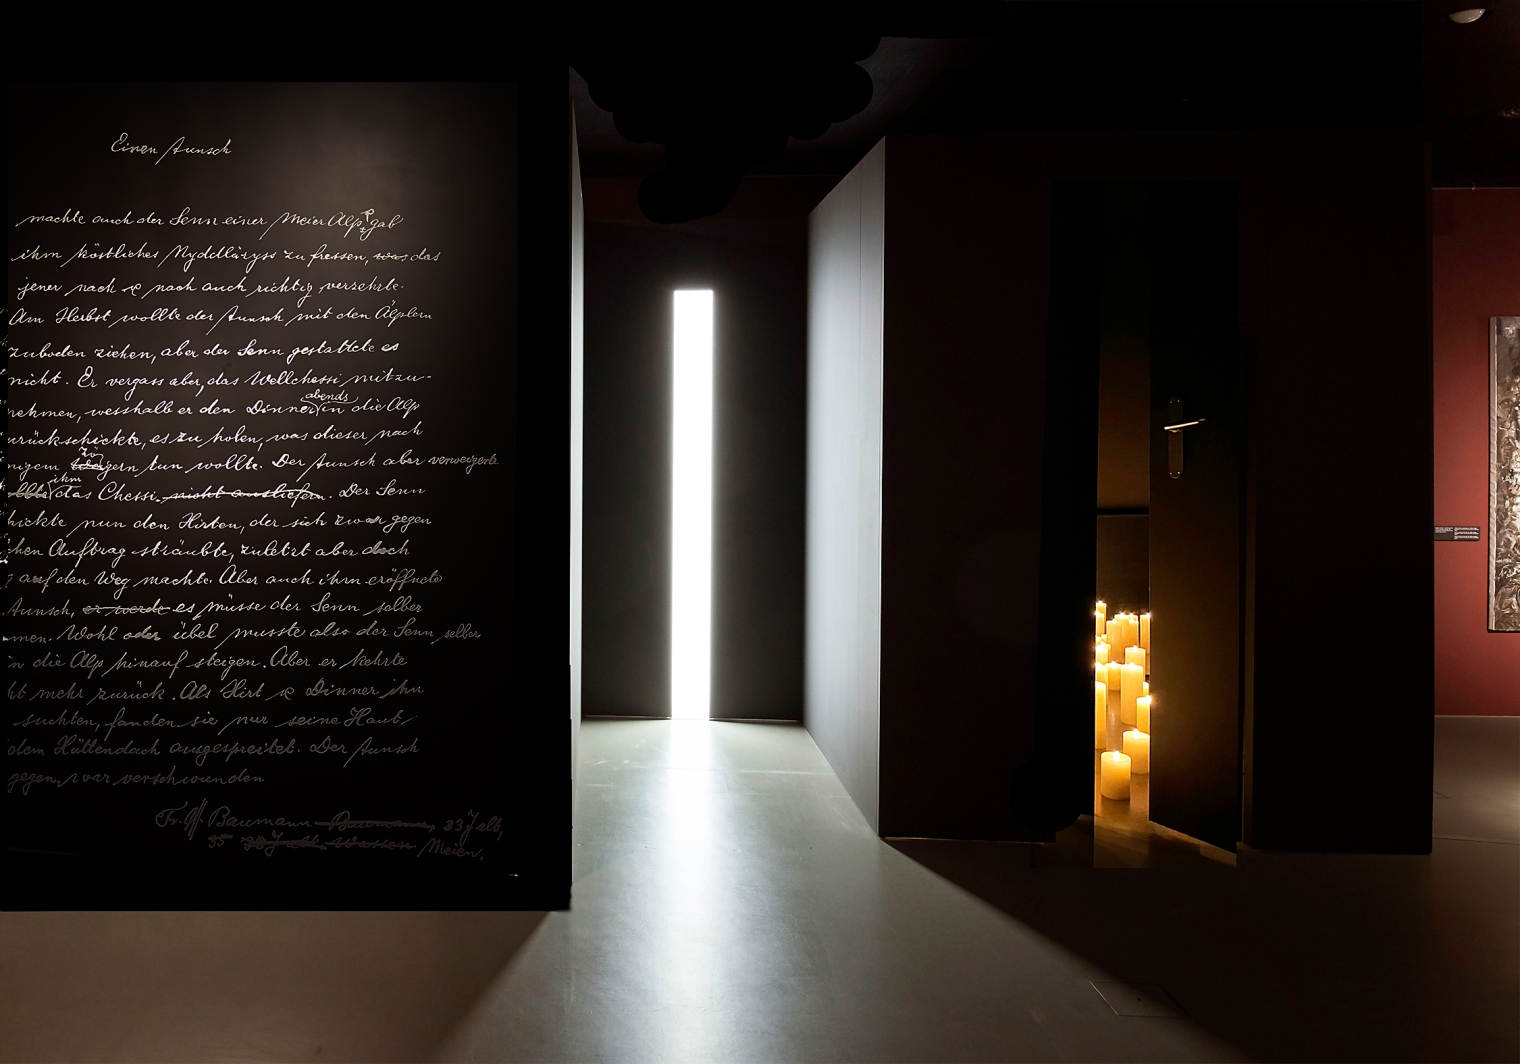 Einen Tunsch
machte auch der Senn einer Meier Alp & gab
ihm köstliches Nyddläryss zu fressen, was das
jener nach & nach auch richtig verzehrte.
Am Herbst wollte der Tunsch mit den Älplern
zuboden ziehen, aber der Senn gestattete es
nicht. Er vergass aber, das Wellchessi mitzu-
nehmen, wesshalb er den Dinner abends in die Alp
urückschickte, es zu holen, was dieser nach
nigem zögern tun wollte. Der Tunsch aber verweigerte
ihm das Chessi, nicht ausliefern. Der Senn
hickte nun den Hirten, der sich zwar gegen
chen Auftrag sträubte, zuletzt aber doch
auf den Weg machte. Aber auch ihm eröffnete
Tunsch, er werde es müsse der Senn selber
men. Wohl oder übel musste also der Senn selber
in die Alp hinauf steigen. Aber er kehrte
ht mehr zurück. Als Hirt & Dinner ihn
suchten, fanden sie nur seine Haut
dem Hüttendach ausgespreitet. Der Tunsch
gegen, war verschwunden
Fr. Baumann Baumann, 33 J alt,
35 Wassen Meien.